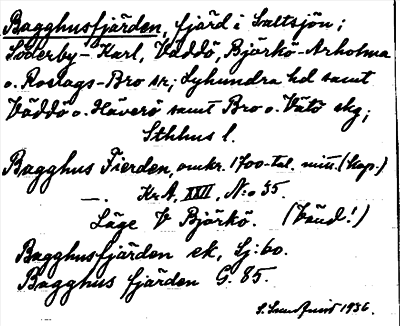 Bagghusfjärden, fjärd i Saltsjön;
Söderby-Karl, Väddö, Björkö-Arholma
o. Roslags-Bro sr; Lyhundra hd samt
Väddö o. Häverö samt Bro o. Vätö skg;
Sthlms l.
Bagghus Fierden, omkr. 1700-tal. mitt. (Kop.)
—. Kr.A, XXII, N:o 35.
Läge V Björkö. (Vänd!)
Bagghusfjärden ek, Lj: 60.
Bagghus fjärden G. 85.
1936.